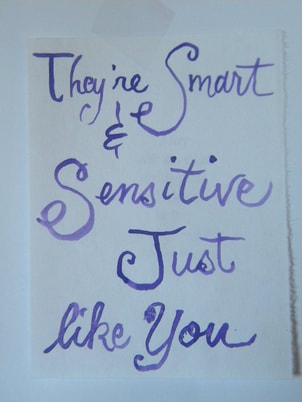 They're Smart
&
Sensitive
Just
like You